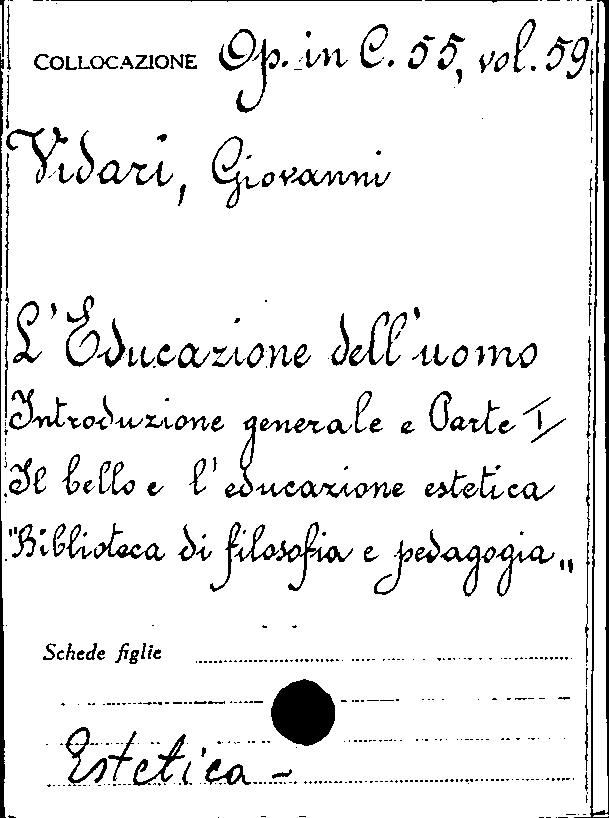 COLLOCAZIONE Op. in C. 55, vol. 59
Vidari, Giovanni
L'Educazione dell'uomo
Introduzione generale e Parte I
Il bello e l'educazione estetica
"Biblioteca di filosofia e pedagogia„
Schede figlie
Estetica -